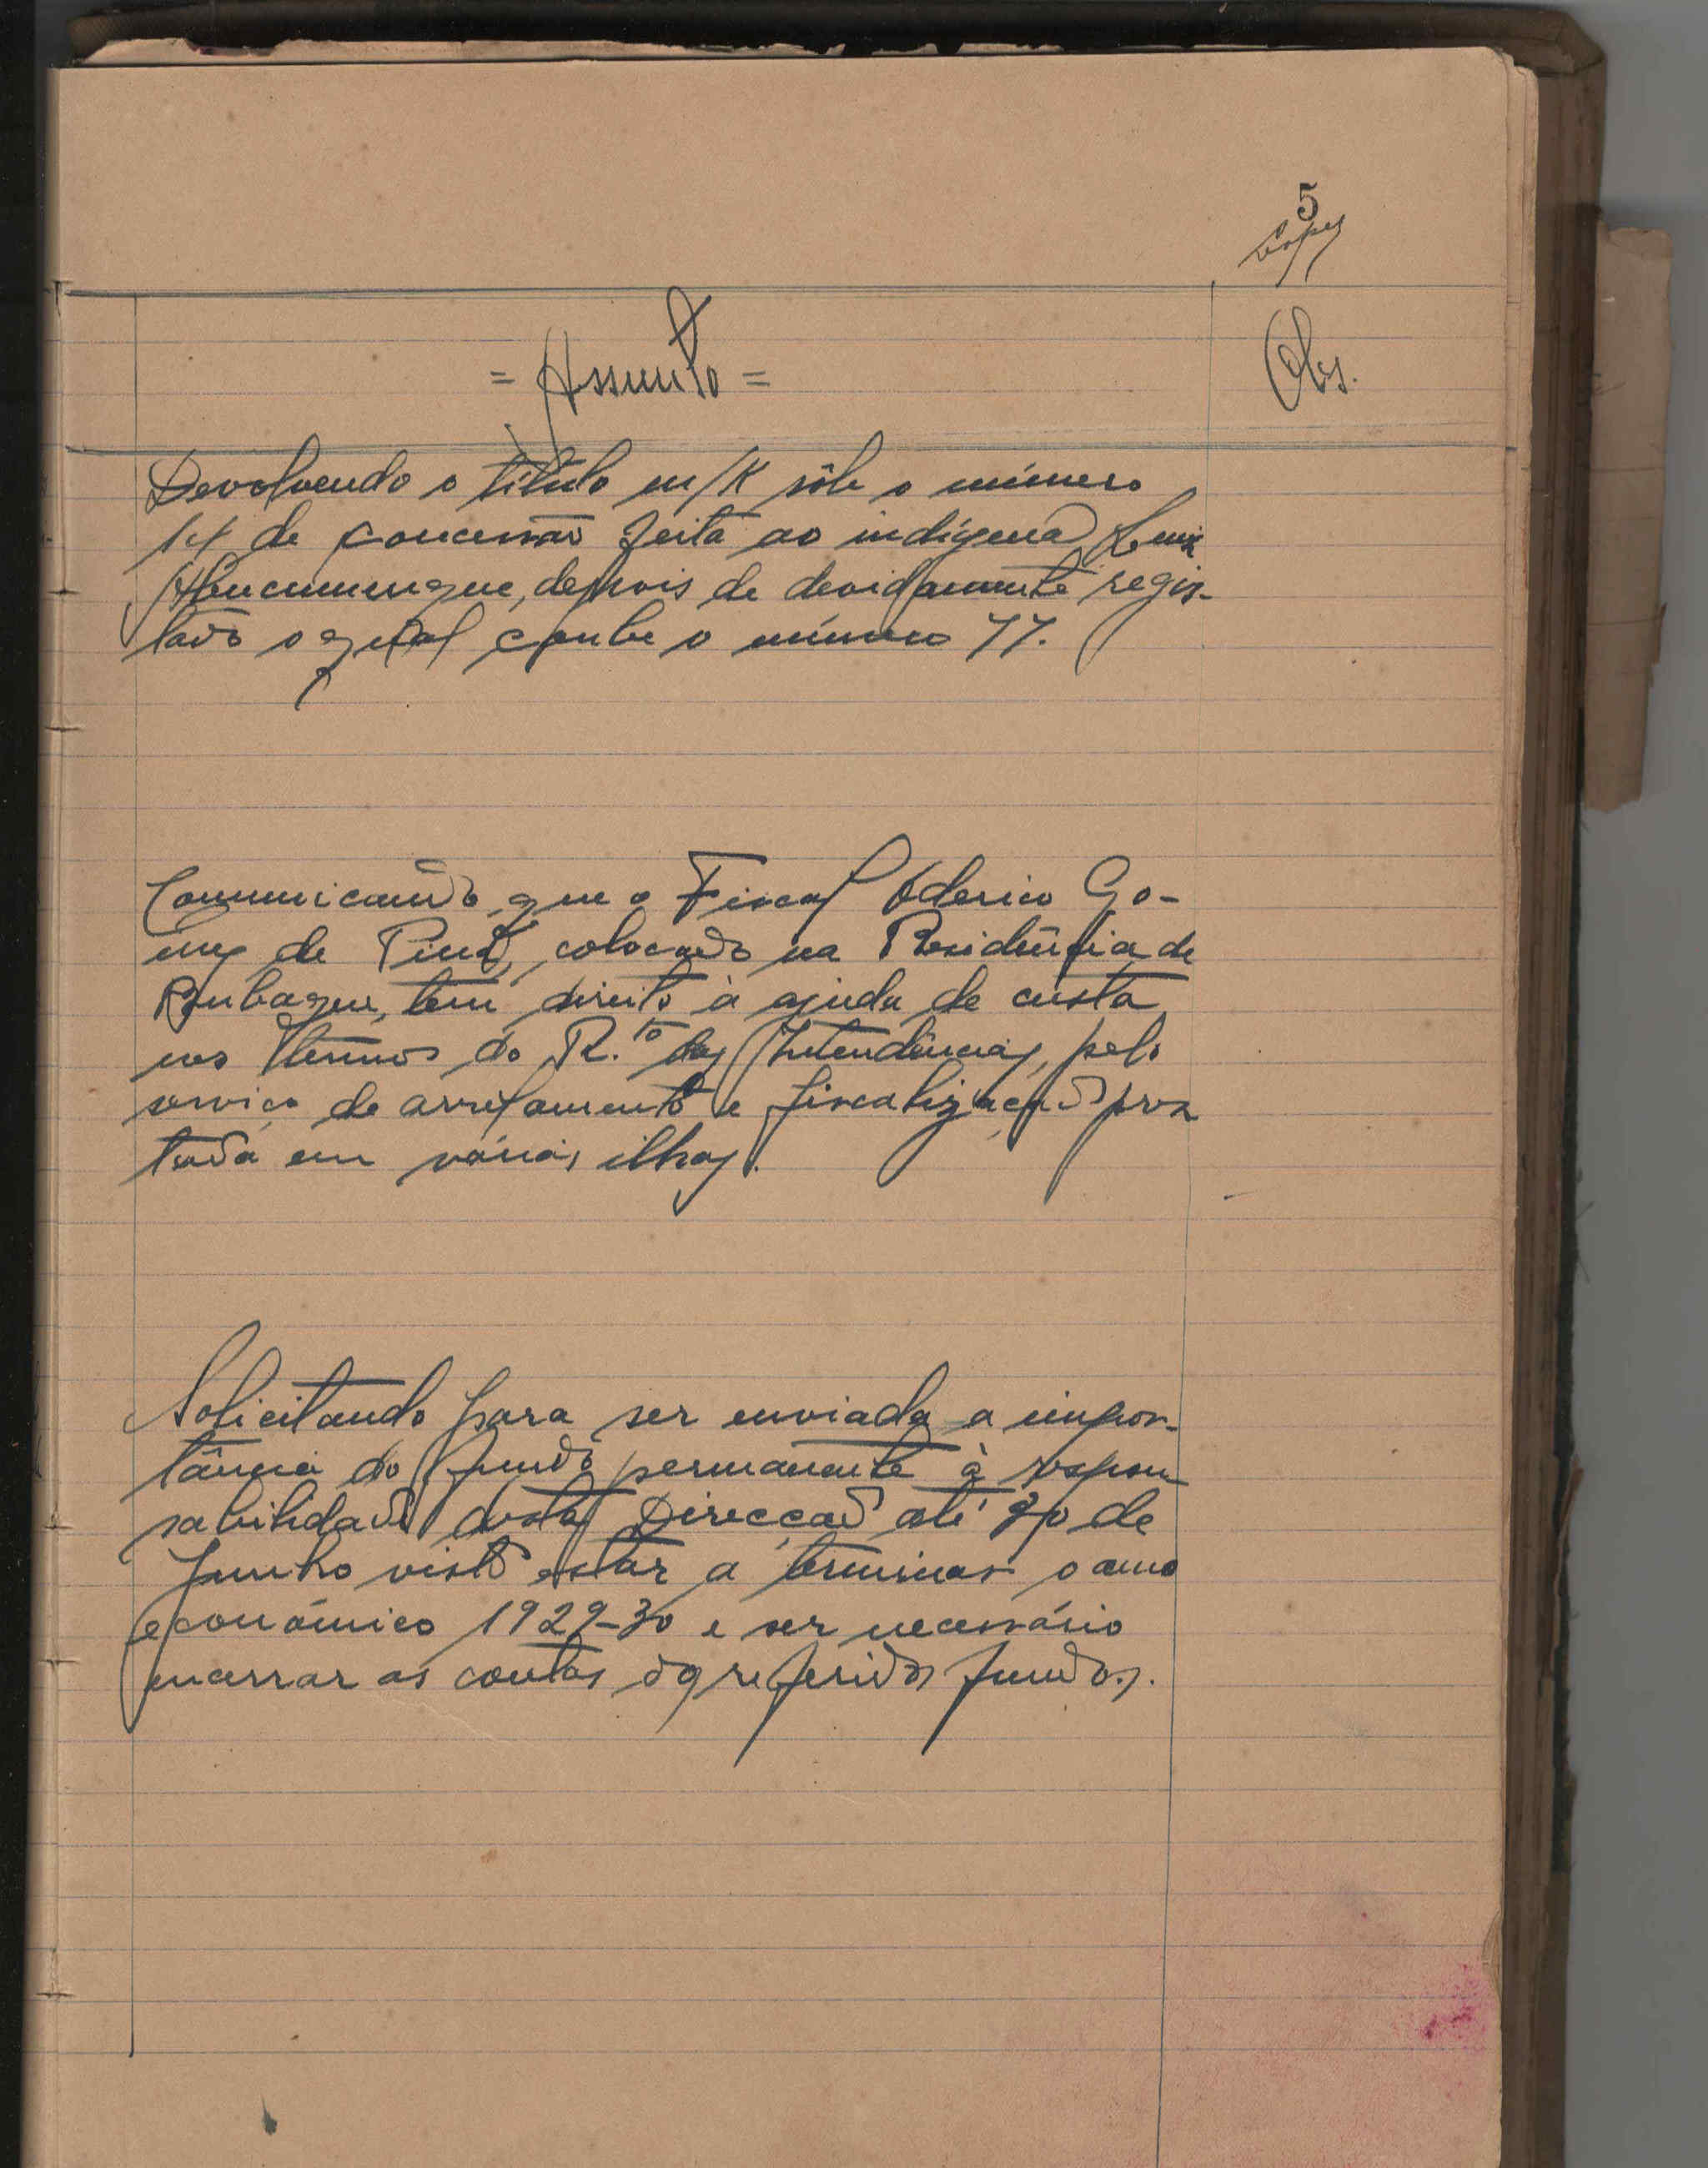 5
Lopes
= Assunto =
Obs.
Devolvendo o título m/K sôb o número
14 de concessão feita ao indígena
depois de devidamente regis-
tado o qual coube o número 77.
Comunicando que o Fiscal Oderico Go-
mes de Pina, colocado na Residência de
Bubaque, tem direito à ajuda de custa
nos termos do R.to das Intendências, pelo
serviço de arrolamento e fiscalização pres
tada em várias ilhas.
Solicitando para ser enviada a impor-
tância do fundo permanente à respon
sabilidade desta Direcção até 30 de
Junho visto estar a terminar o ano
económico 1929-30 e ser necessário
encerrar as contas dos referidos fundos.